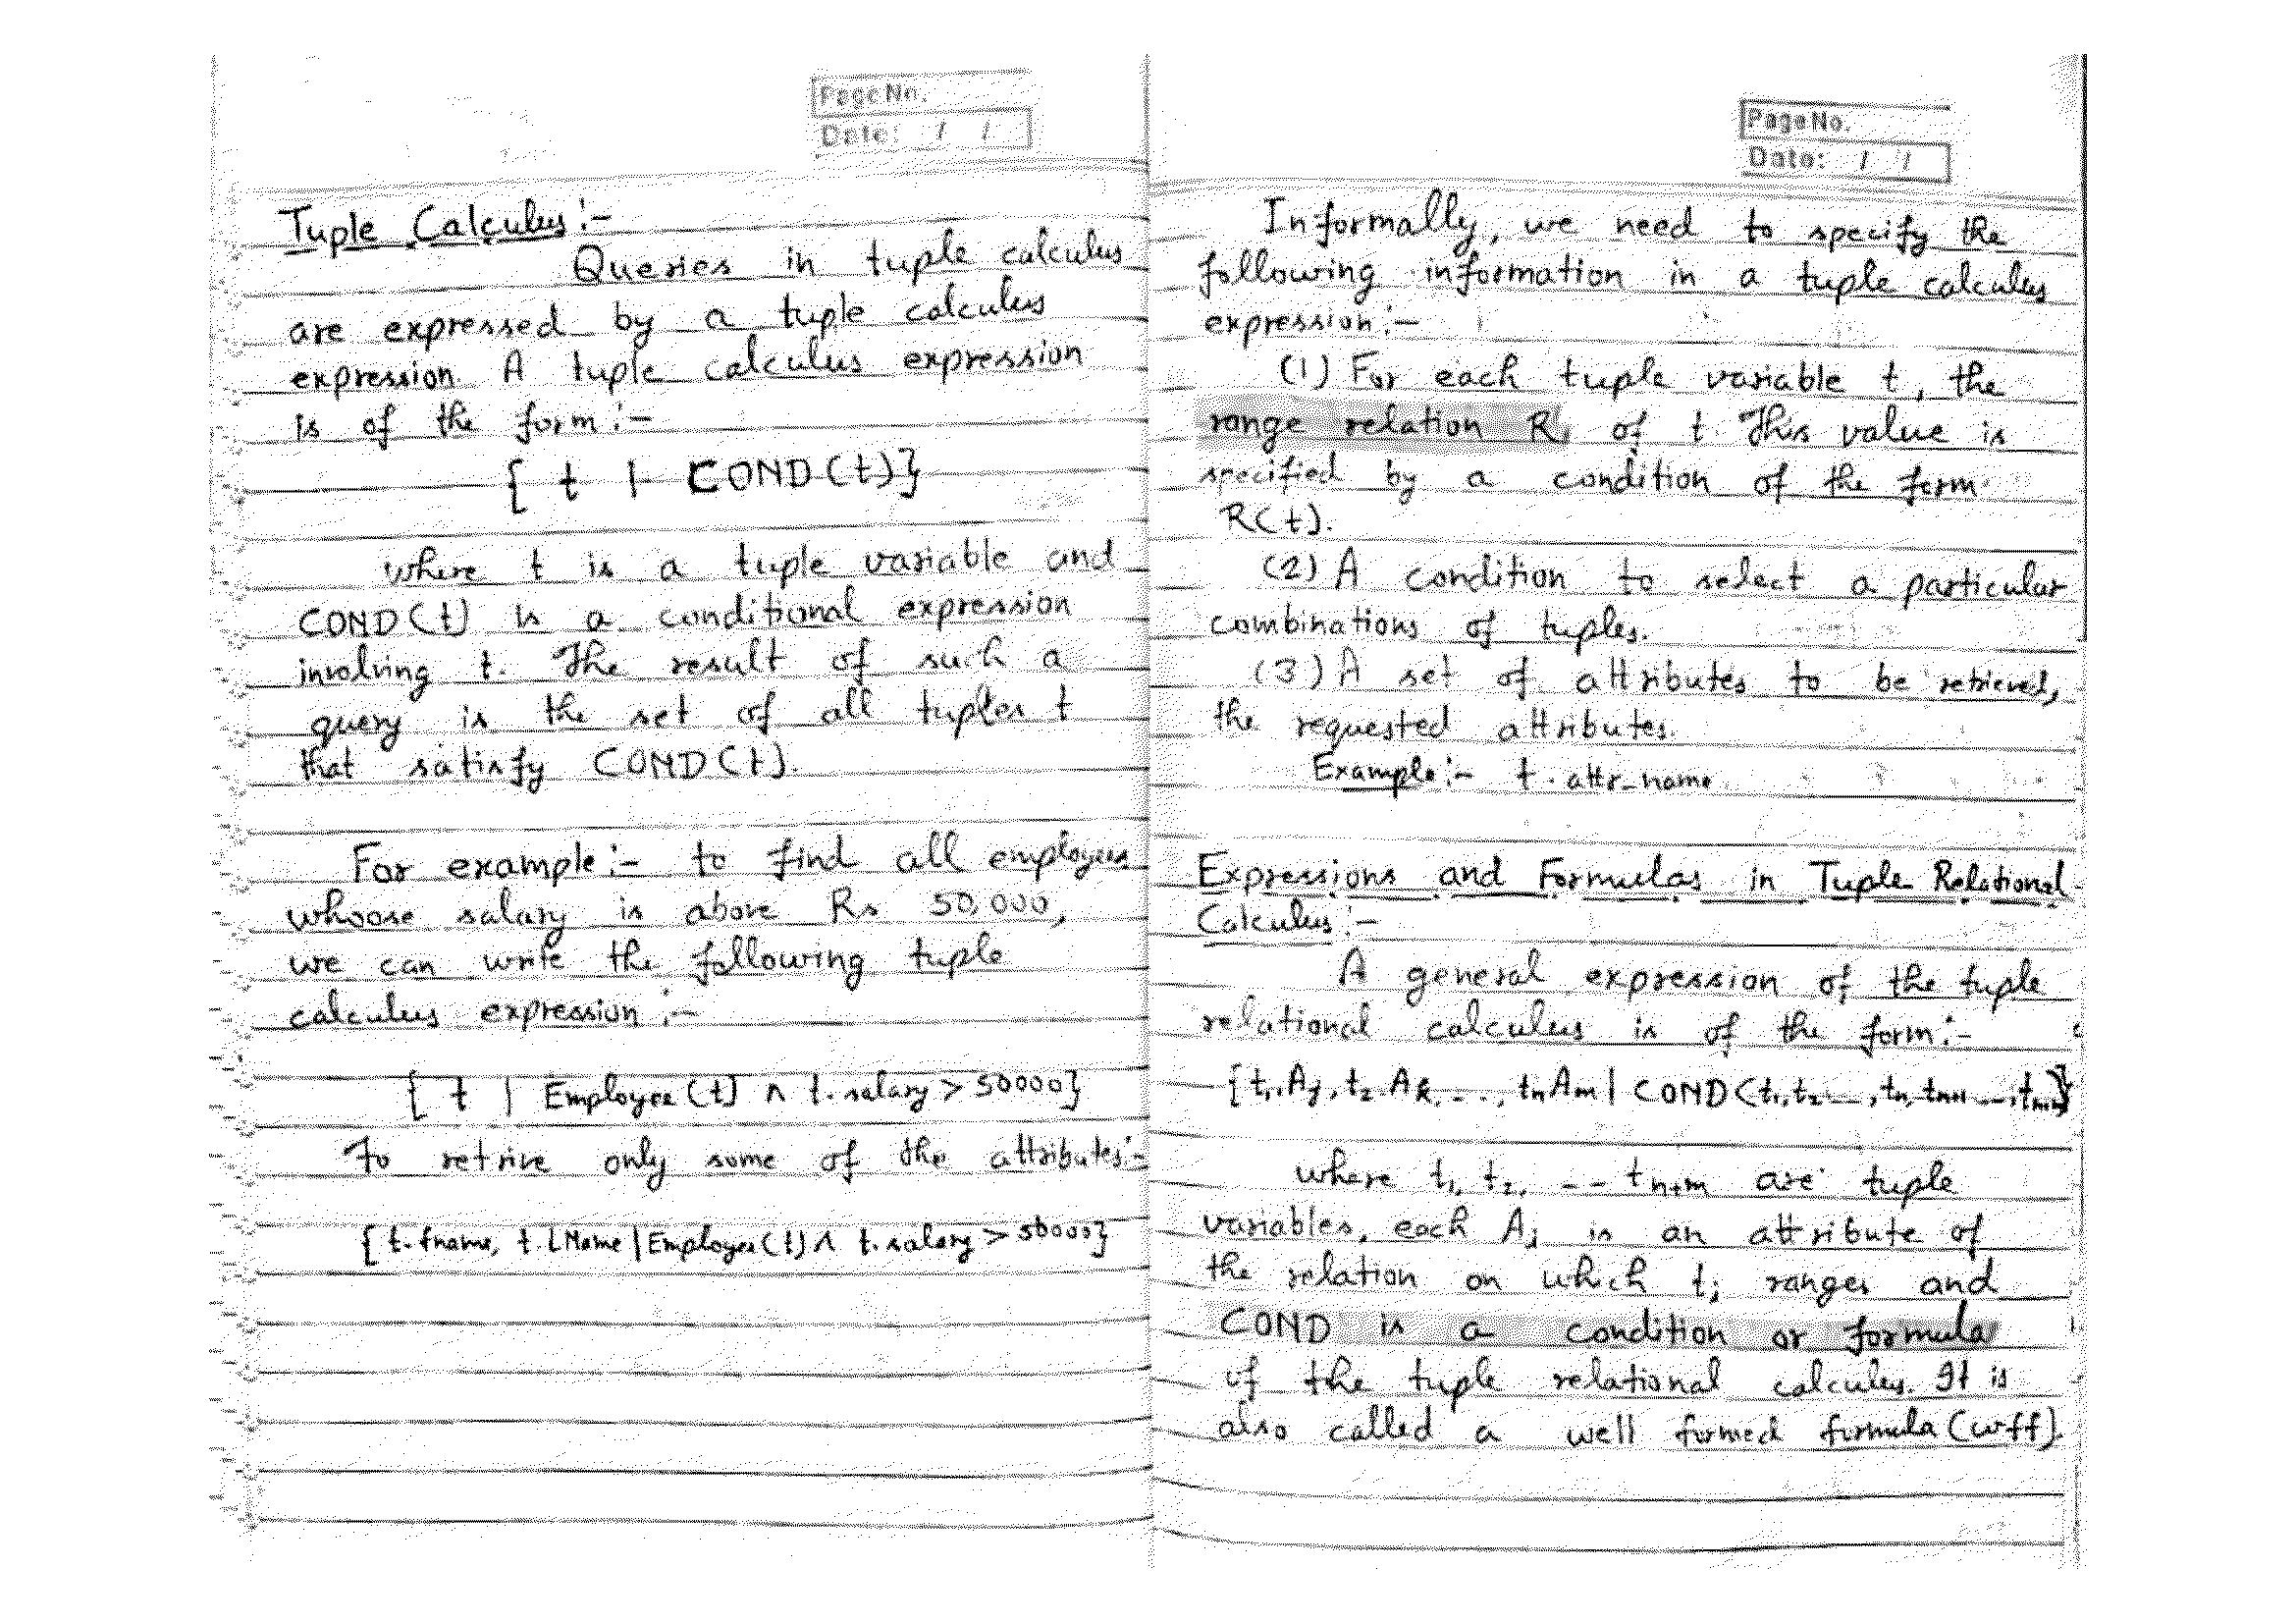 Page No.
Date: / /
Tuple Calculus:-
Queries in tuple calculus
are expressed by a tuple calculus
expression. A tuple calculus expression
is of the form:-
{ t | COND(t)}
where t is a tuple variable and
COND(t) is a conditional expression
involving t. The result of such a
query is the set of all tuples t
that satisfy COND(t).
For example:- to find all employees
whoose salary is above Rs 50,000,
we can write the following tuple
calculus expression:-
{ t | Employee(t) ∧ t.salary > 50000}
To retrive only some of the attributes:-
{ t.fname, t.LName | Employee(t) ∧ t.salary > 50000}
Page No.
Date: / /
Informally, we need to specify the
following information in a tuple calculus
expression:-
(1) For each tuple variable t, the
range relation R, of t. This value is
specified by a condition of the form
R(t).
(2) A condition to select a particular
combinations of tuples.
(3) A set of attributes to be retrieved,
the requested attributes.
Example:- t.attr_name
Expressions and Formulas in Tuple Relational
Calculus:-
A general expression of the tuple
relational calculus is of the form:-
{t₁.Aj, t₂.Ak, ..., tn.Am | COND(t₁, t₂ ..., tn, tn+1 ..., tn+m)}
where t₁, t₂, -- tn+m are tuple
variables, each Ai is an attribute of
the relation on which ti ranges and
COND is a condition or formula
of the tuple relational calculus. It is
also called a well formed formula (wff).